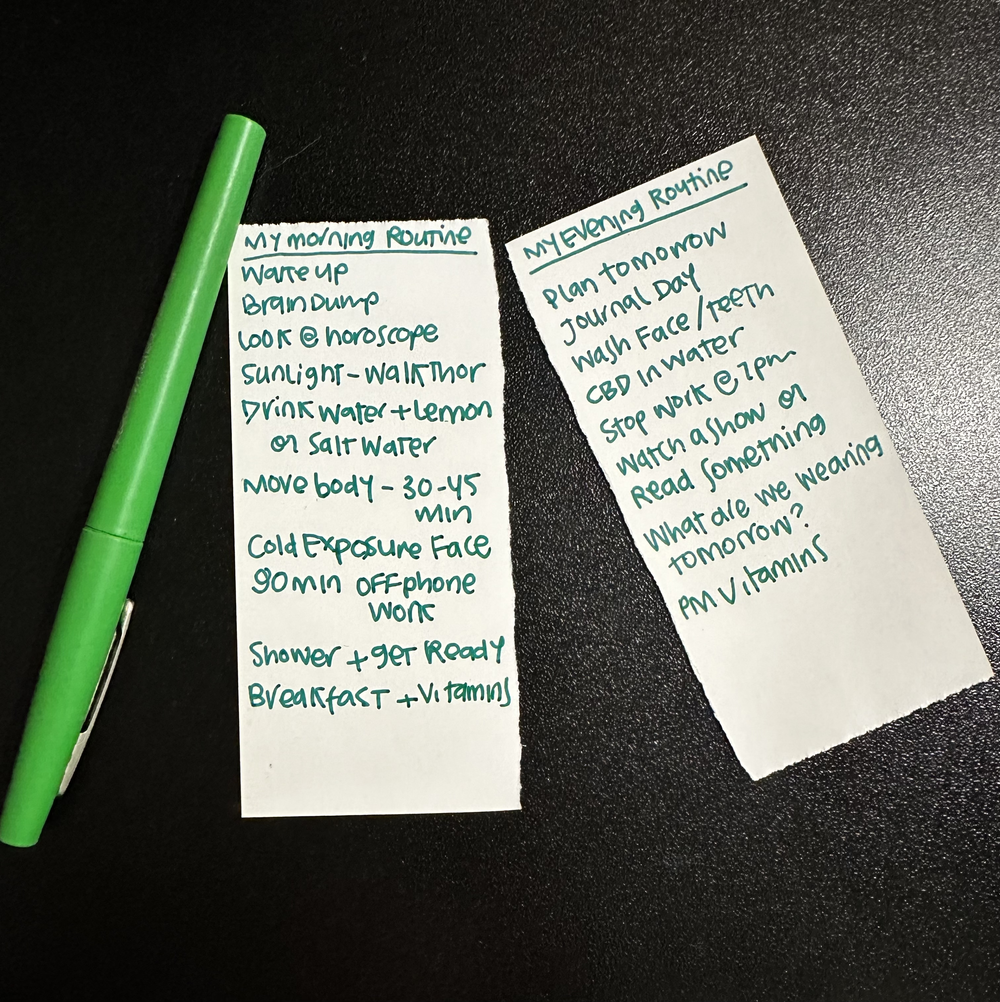 My morning Routine
Wake up
Brain Dump
Look @ horoscope
Sunlight - walk Thor
Drink water + Lemon
or Salt water
Move body - 30-45
min
Cold Exposure Face
90 min OFF phone
Work
Shower + get Ready
Breakfast + Vitamins
My Evening Routine
Plan tomorrow
Journal Day
Wash Face / Teeth
CBD in water
Stop work @ 7pm
Watch a show or
Read Something
What are we wearing
tomorrow?
PM Vitamins